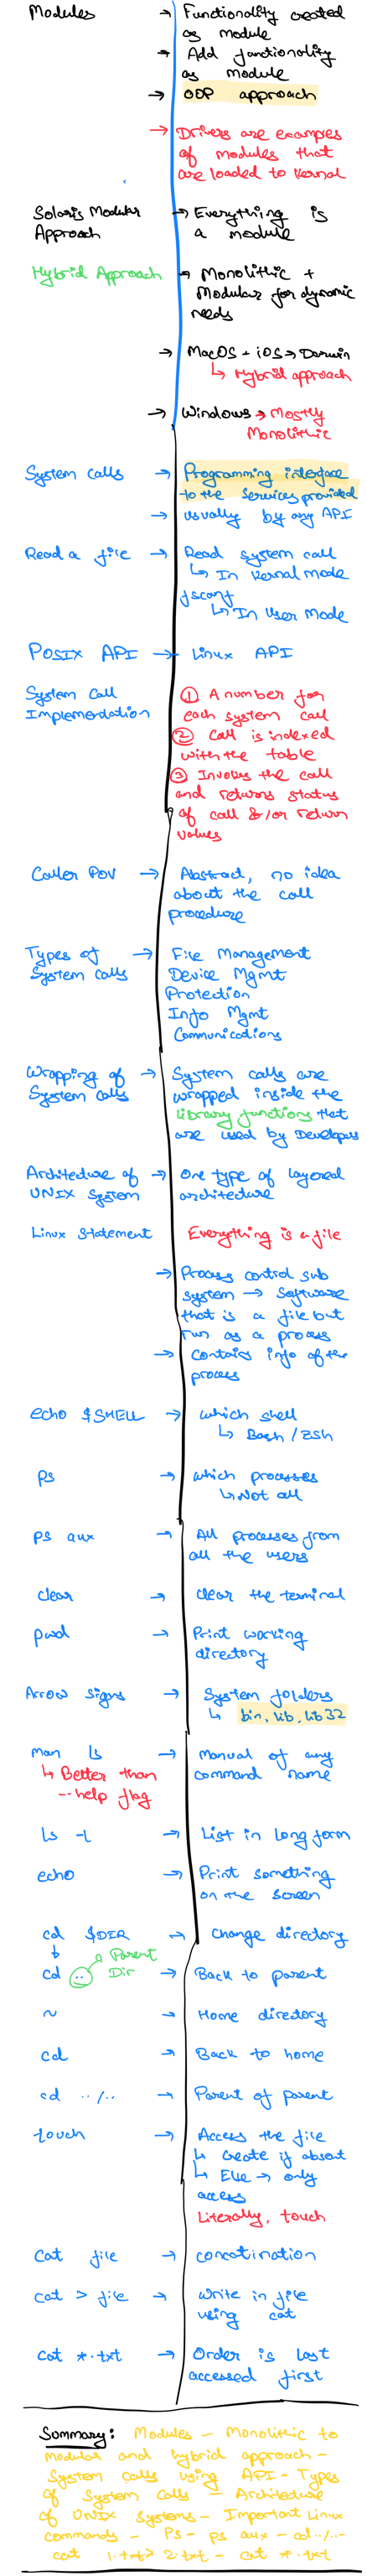 Modules → Functionality created
as module
→ Add functionality
as module
→ OOP approach
→ Drivers are examples
of modules that
are loaded to kernel
Solaris Modular → Everything is
Approach a module
Hybrid Approach → Monolithic +
Modular for dynamic
needs
→ MacOS + iOS → Darwin
↳ Hybrid approach
→ Windows → Mostly
Monolithic
System calls → Programming interface
to the services provided
→ usually by any API
Read a file → Read system call
↳ In Kernel mode
fscanf
↳ In User Mode
POSIX API → Linux API
System Call ① A number for
Implementation each system call
② Call is indexed
with the table
③ Invokes the call
and returns status
of call &/or return
values
Caller POV → Abstract, no idea
about the call
procedure
Types of → File Management
System calls Device Mgmt
Protection
Info Mgmt
Communications
Wrapping of → System calls are
System calls wrapped inside the
library functions that
are used by Developers
Architecture of → One type of layered
UNIX System architecture
Linux Statement Everything is a file
→ Process control sub
system → Software
that is a file but
run as a process
→ Contains info of the
process
echo $SHELL → which shell
↳ Bash / ZSH
ps → which processes
↳ Not all
ps aux → All processes from
all the users
clear → clear the terminal
pwd → Print working
directory
Arrow signs → System folders
↳ bin, lib, lib32
man ls → Manual of any
↳ Better than command name
--help flag
ls -l → List in long form
echo → Print something
on the screen
cd $DIR → change directory
Parent
cd .. Dir → Back to parent
~ → Home directory
cd → Back to home
cd ../.. → Parent of parent
touch → Access the file
↳ create if absent
↳ Else → only
access
Literally, touch
cat file → concatination
cat > file → write in file
using cat
cat *.txt → Order is last
accessed first
Summary: Modules - Monolithic to
modular and hybrid approach -
System calls using API - Types
of System calls - Architecture
of UNIX Systems - Important Linux
commands - Ps - ps aux - cd ../.. -
cat 1.txt > 2.txt - cat *.txt